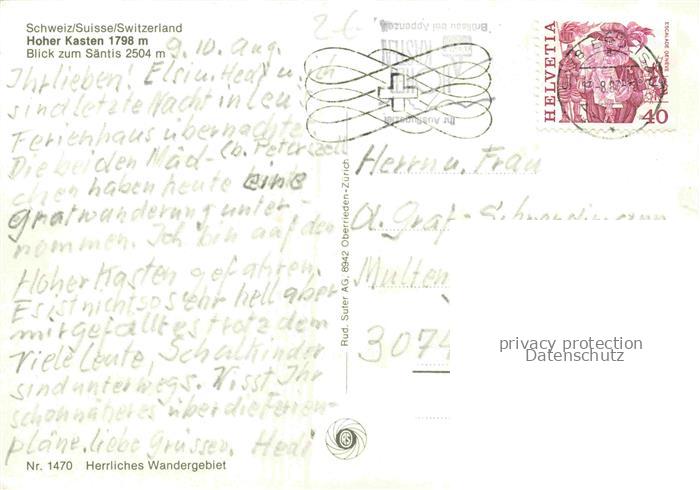 Schweiz/Suisse/Switzerland
Hoher Kasten 1798 m
Blick zum Säntis 2504 m
9.10. Aug.
Ihr lieben, Elsi
sind letzte Nacht in
Ferienhaus übernachtet
Die beiden Mäd- (b. Peterzell
chen haben heute eine
Gratwanderung unter-
nommen. Ich bin auf den
Hoher Kasten gefahren.
Es ist nicht so sehr hell aber
mir gefällt es trotzdem
Viele Leute, Schulkinder
sind unterwegs. Wisst Ihr
schon näheres über die Ferien-
pläne. liebe Grüsse. Hedi
Nr. 1470 Herrliches Wandergebiet
Rud. Suter AG, 8942 Oberrieden-Zürich
Brülisau bei Appenzell
KASTEN
Ihr Ausflugsziel
HELVETIA
ESCALADE GENÈVE
40
Herrn u. Frau
A. Graf-
Multen
3074
privacy protection
Datenschutz